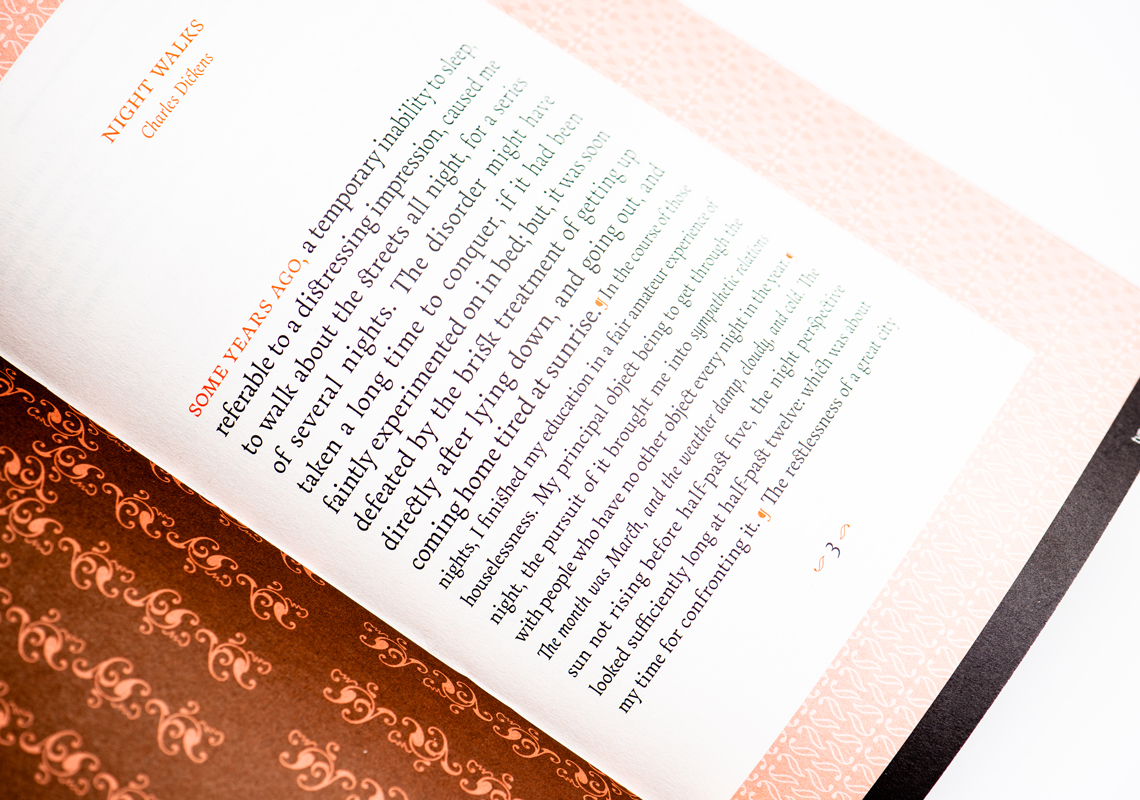 NIGHT WALKS
Charles Dickens
SOME YEARS AGO, a temporary inability to sleep,
referable to a distressing impression, caused me
to walk about the streets all night, for a series
of several nights. The disorder might have
taken a long time to conquer, if it had been
faintly experimented on in bed; but, it was soon
defeated by the brisk treatment of getting up
directly after lying down, and going out, and
coming home tired at sunrise. ¶ In the course of those
nights, I finished my education in a fair amateur experience of
houselessness. My principal object being to get through the
night, the pursuit of it brought me into sympathetic relations
with people who have no other object every night in the year. ¶
The month was March, and the weather damp, cloudy, and cold. The
sun not rising before half-past five, the night perspective
looked sufficiently long at half-past twelve: which was about
my time for confronting it. ¶ The restlessness of a great city
3